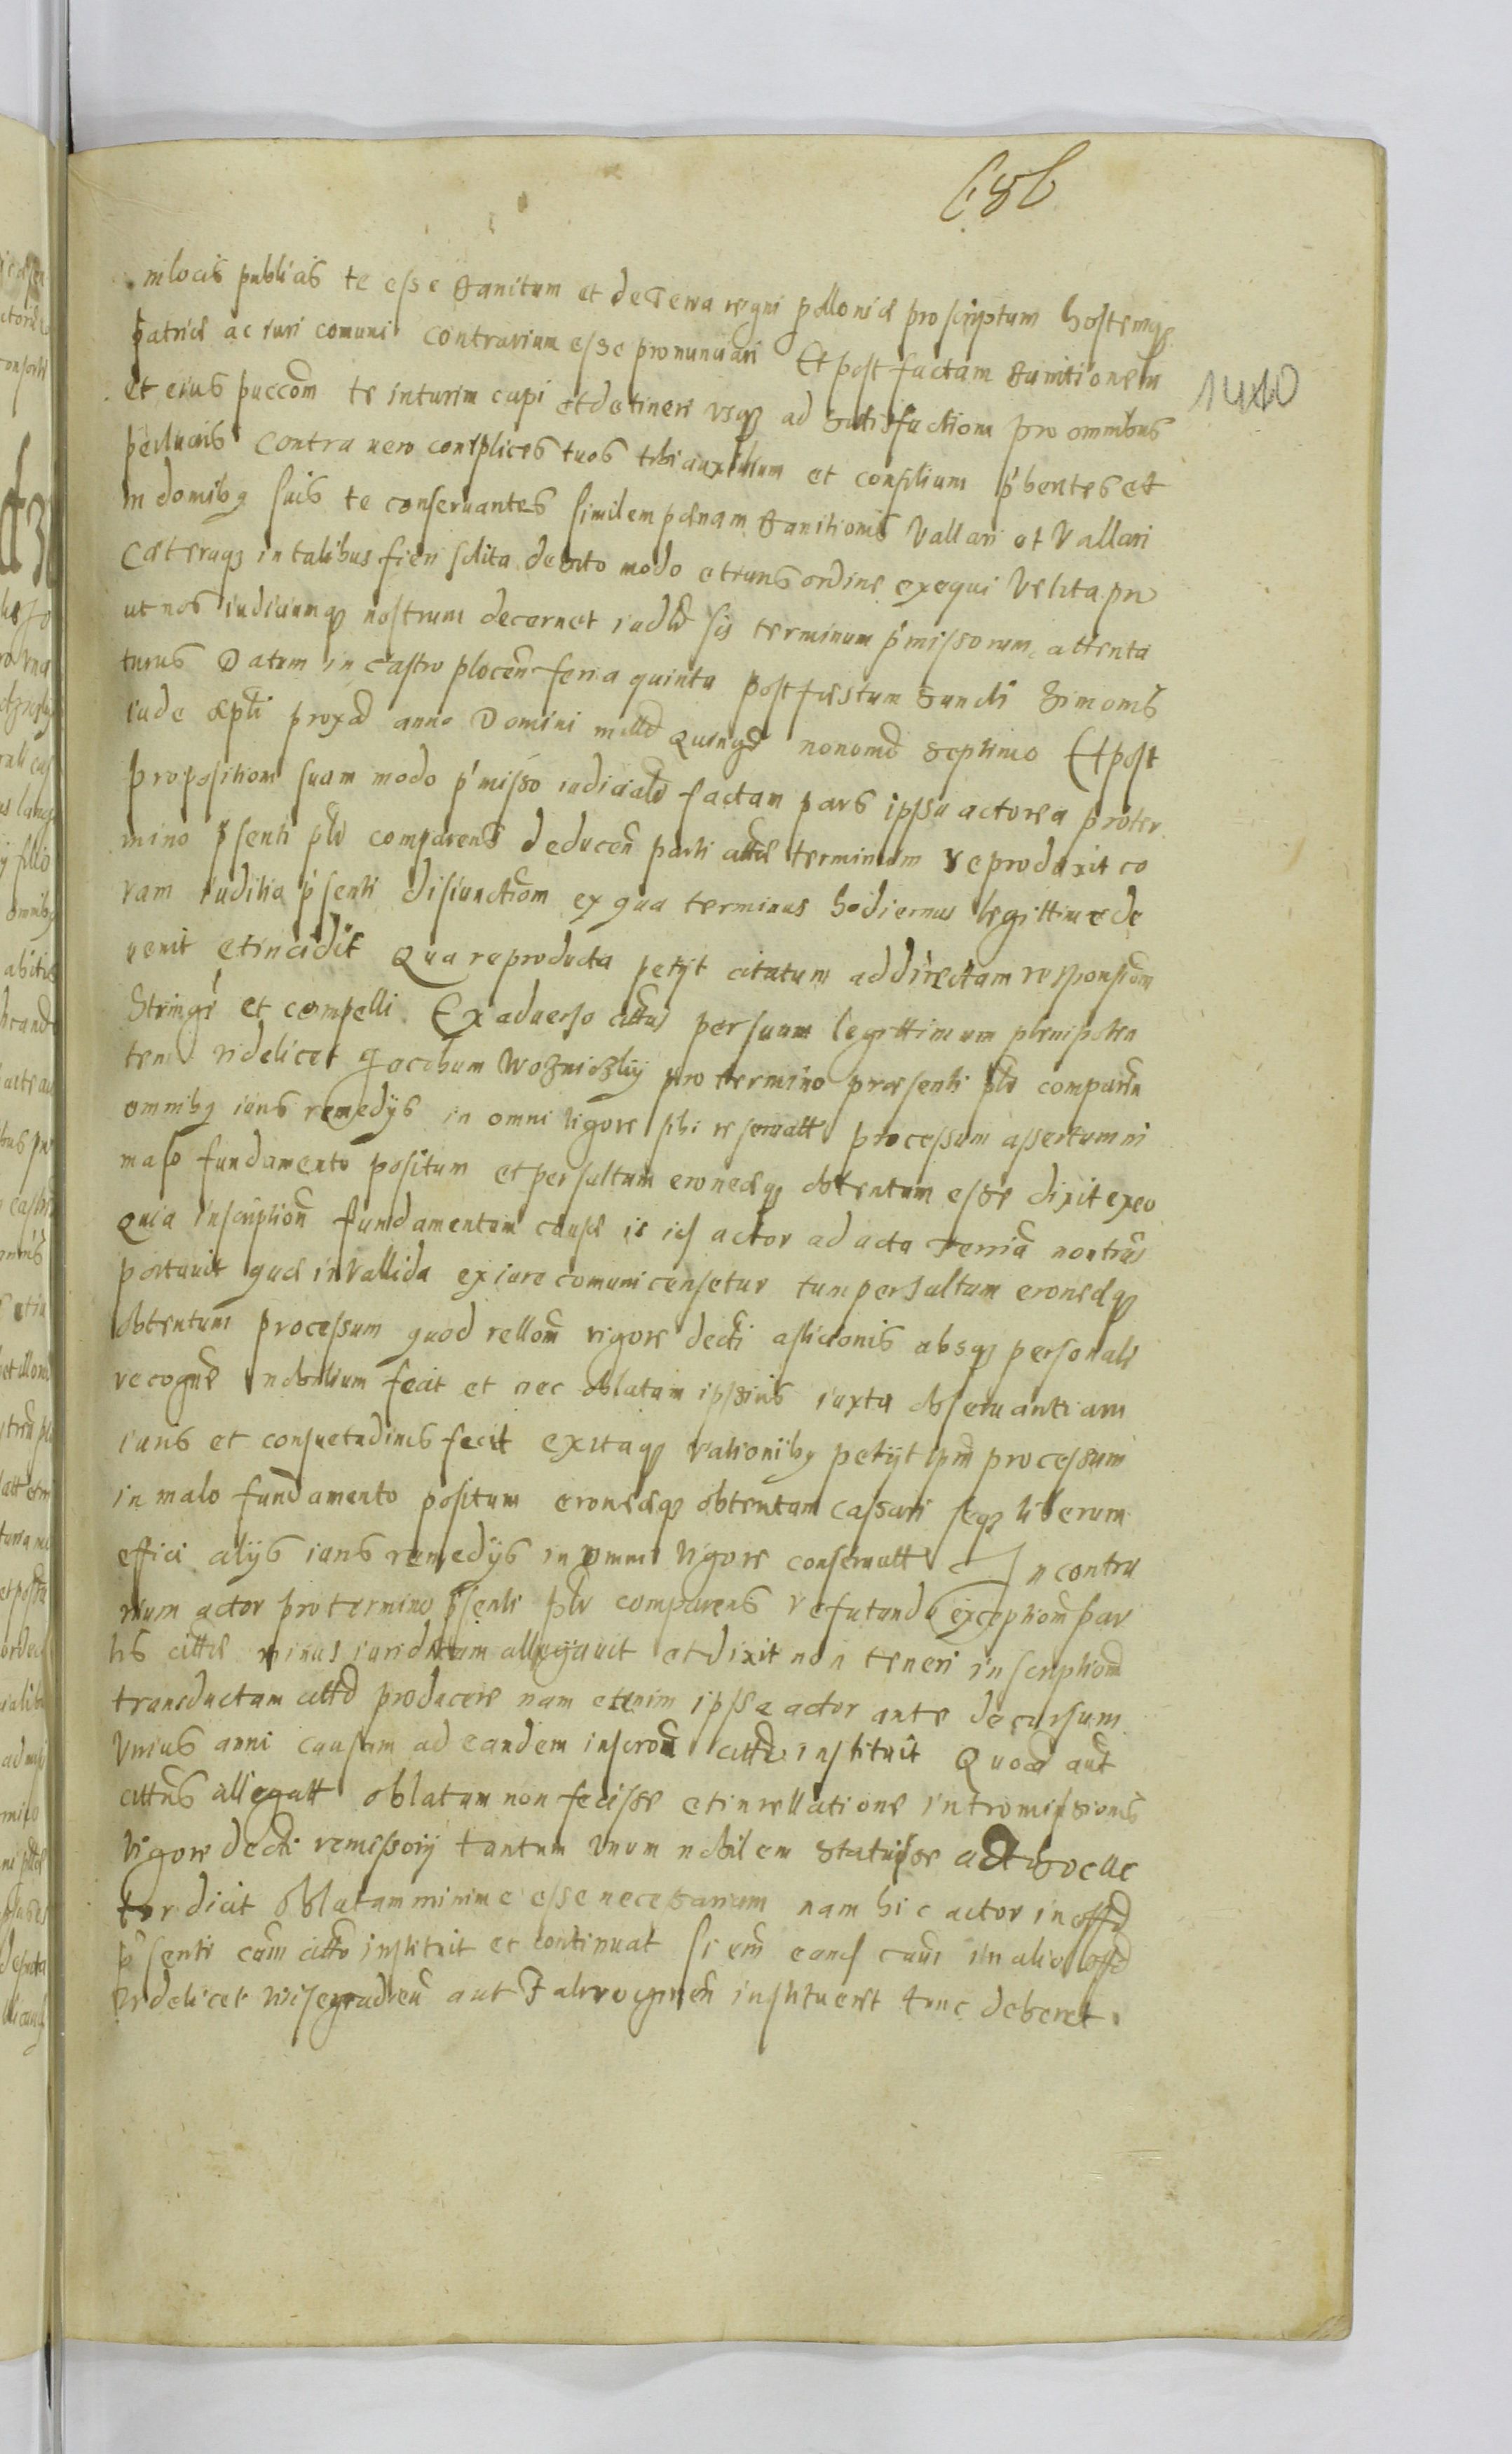 686
in locis publicis te esse banitum et de terra regni pollonid proscriptum hostemq3
patrid ac iuri comuni contrarium esse pronunciari Et post factam banitionem
1410
et eius puccom te inturim capi et detineri usq3 ad satisfactiom pro omnibus
perlucris Contra vero complices tuos tibi auxilium et consilium p'bentes et
in domibq suis te conservantes similem pænam banitionis Vallari et Vallari
Cæteraq3 in talibus fieri solita debito modo et iuris ordine exequi Velita pro
ut nos iudiciumq3 nostrum decernet iudld sis terminum p'missorum attenta
turus Datum in Castro plocen feria quinta post festum Sancti Simonis
iude apli proxd anno Domini milld Quingd nonomd septimo Et post
propositiom suam modo p'misso iudiciald factam pars ipsa actorea pro ter
mino psenti pld comparens deducen parti attd terminum reproduxit co
ram iuditio p'senti disiunctiom ex qua terminus hodiernus legittime de
venit et incidit Qua reproducta petyt citatum ad directam responsiom
Stringi et compelli. Ex adverso cittus per suum legittimum plenipoten
tem videlicet Jacobum Wozniczky pro termino præsenti pld comparen
omnibq iuris remedys in omni vigore sibi reservatt processum assertum in
malo fundamento positum et per saltum eroneæq3 obtentum esse dixit ex eo
Quia inscriptiom fundamentum causæ is ips actor ad acta terria non trans
portavit quæ invallida ex iure comuni censetur tum per saltum eroneæq3
obtentum processum quod rellom vigore decti aslicionis absq3 personali
recogne nobilium fecit et nec oblatam ipsius iuxta observantiam
iuris et consuetudinis fecit ex itaq3 rationibq petyt ipm processum
in malo fundamento positum eroneæq3 obtentum cassari seq3 liberum
effici alys iuris remedys in omni vigore conservatt In contra
rium actor pro termino psenti pld comparens refutando exceptiom par
tis cittæ minus iuridicam allegavit et dixit non teneri inscriptiom
transductam cittd producere nam etenim ipse actor ante decursum
Unius anni causam ad eandem inscrom cittd instituit Quod aut
cittus allegatt oblatam non fecisse et in rellatione intromissionis
vigore decti remissory tantum unum nobilem statuisse act
tor dicit oblatam minime esse necessariam nam hic actor in offd
p'senti cam cittd instituit et continuat si em eand cam in alio offd
videlicet Wisegradien aut Zakrocymen instituerit tunc deberet